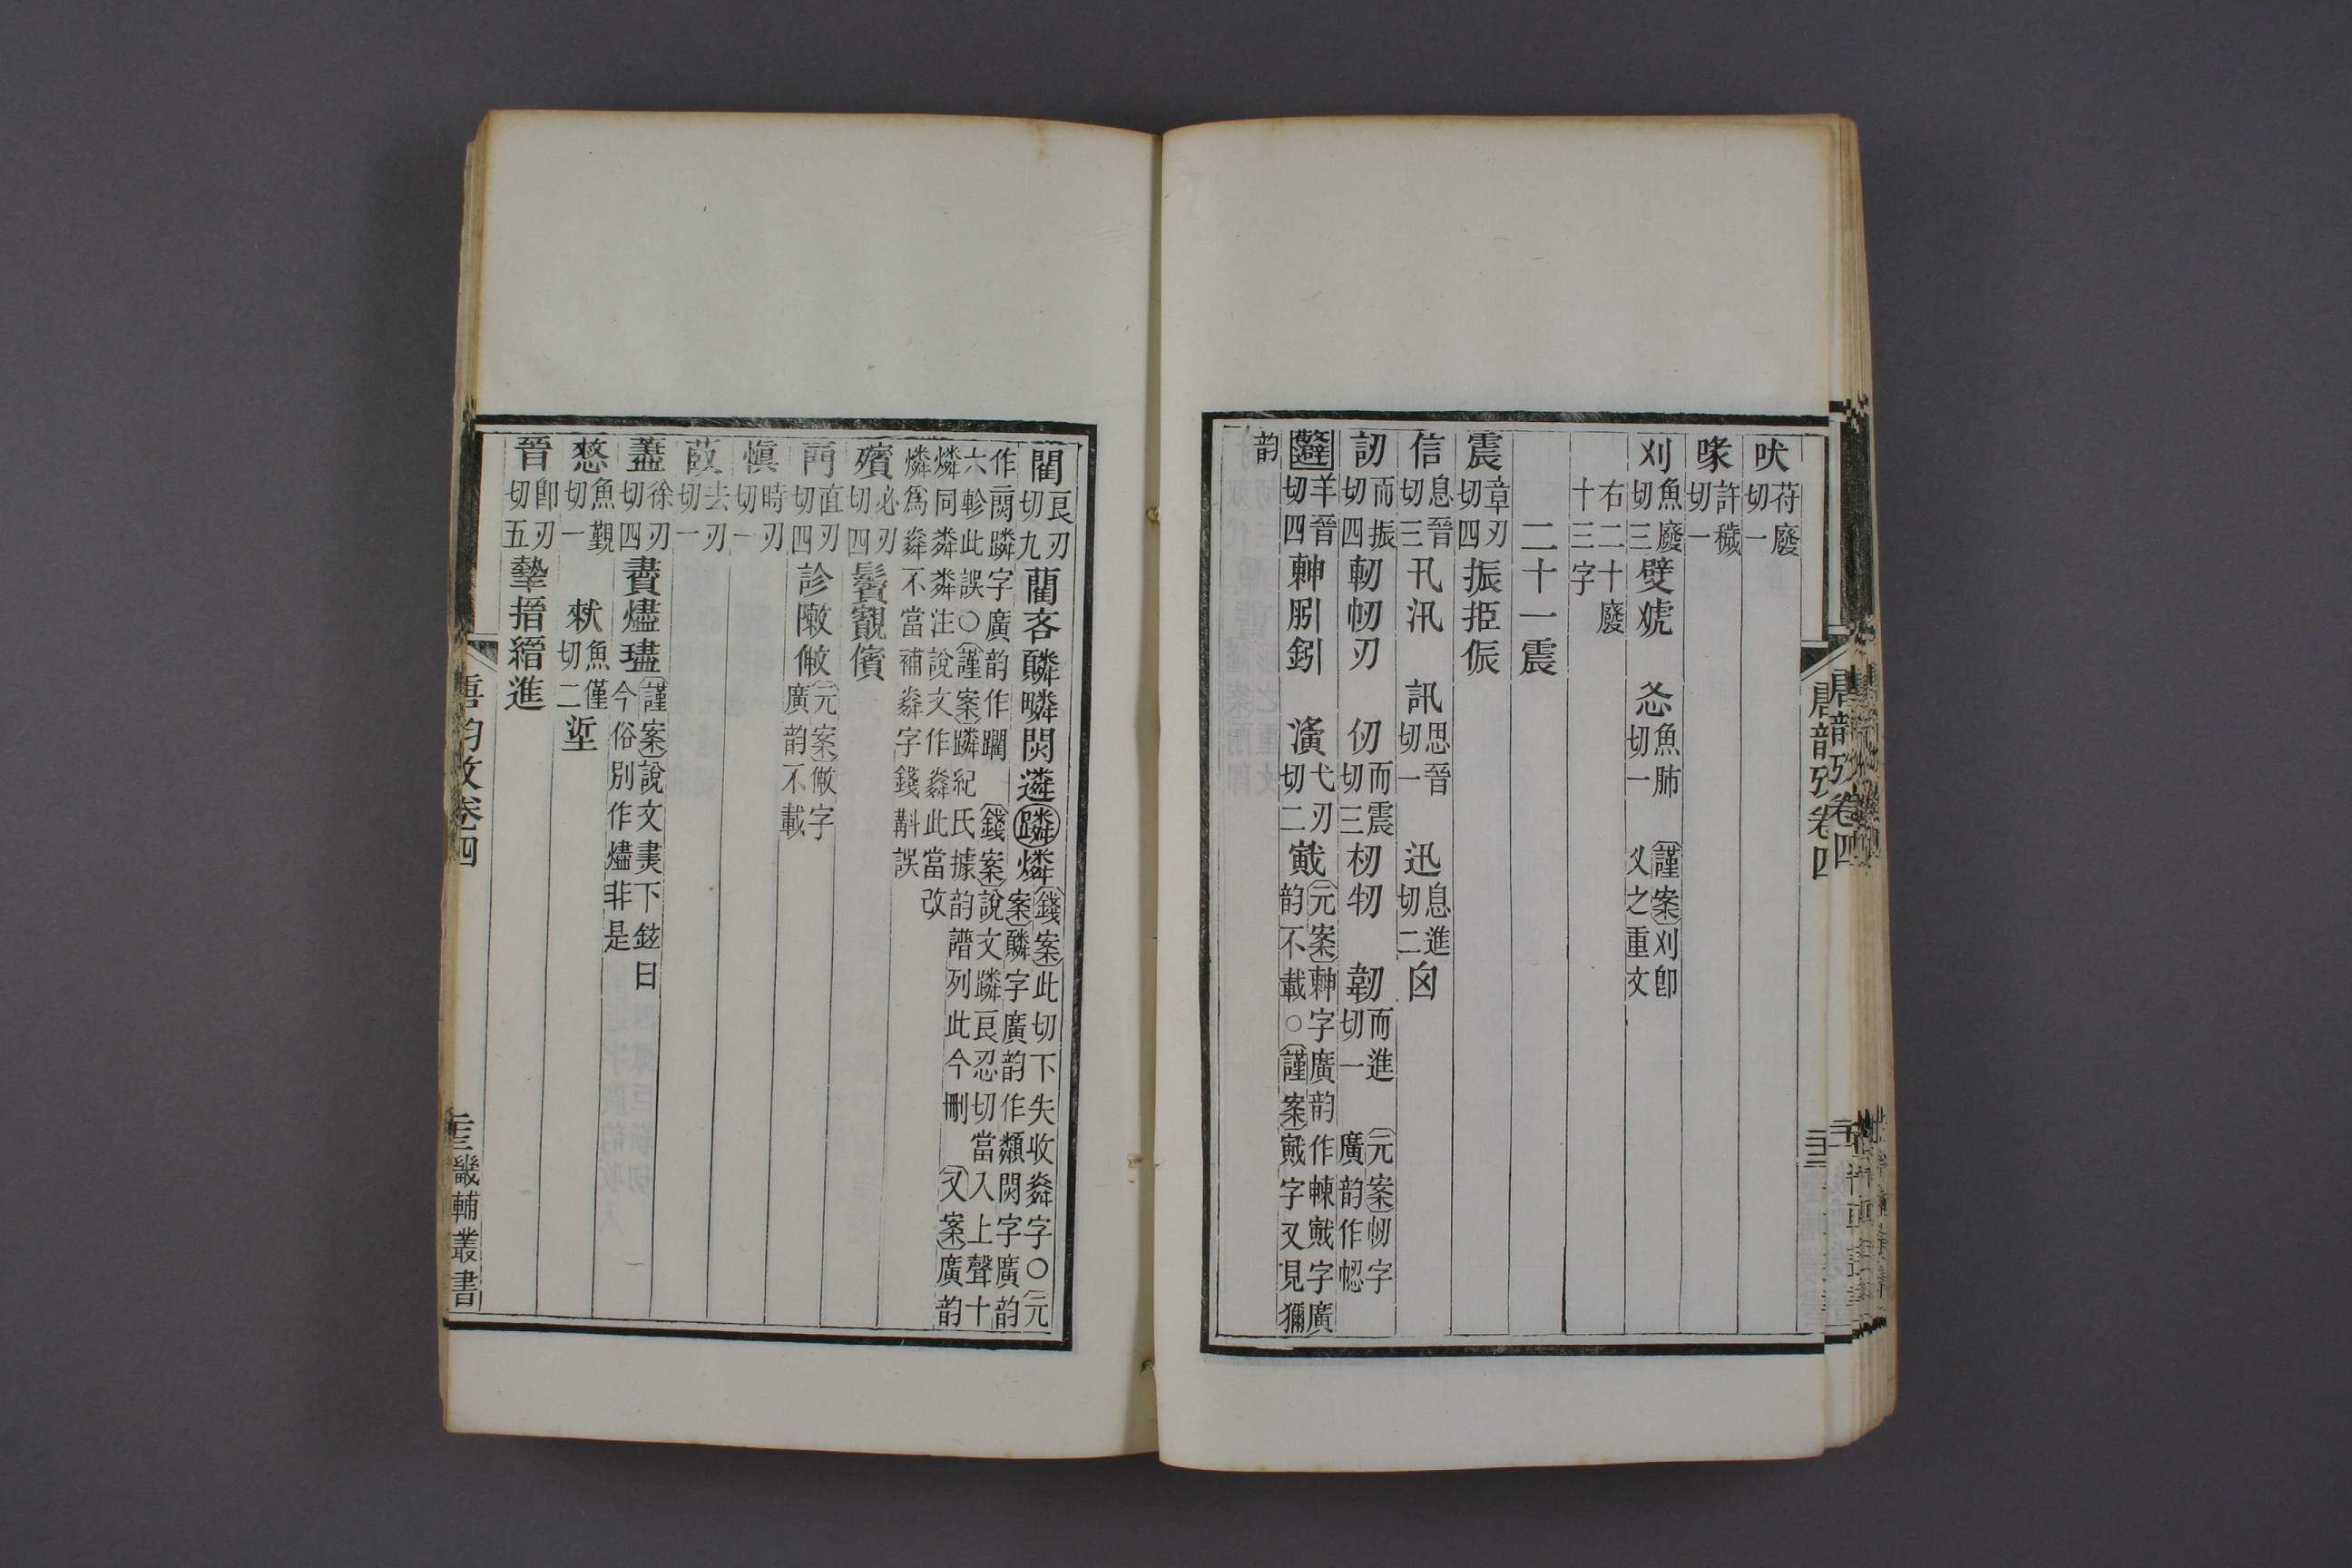 吠苻廢切一
喙許穢切一
刈魚廢切三嬖㹻 忞魚肺切一 謹案刈卽乂之重文
右二十廢十三字
二十一震
震章刃切四振挋侲
信息晉切三卂汛 訊思晉切一 迅息進切二囟
訒而振切四軔㠴刃 仞而震切三杒牣 韌而進切一 元案㠴字廣韵作㤈
羊晉切四𣌾胤鈏 濥弋刃切二戭元案𣌾字廣韵作㯥戭字廣韵不載○謹案戭字又見獮
韵
唐韵攷卷四
藺良刃切九蔺吝驎疄閔遴蹸燐錢案此切下失收粦字○元案驎字廣韵作䫰閔字廣韵
作䦮蹸字廣韵作躙 錢案說文蹸良忍切當入上聲十
六軫此誤○謹案蹸紀氏據韵譜列此今刪 又案廣韵
燐同粦粦注說文作粦此當改
燐爲粦不當補粦字錢斠誤
殯必刃切四鬢覾儐
直刃切四診敶敒元案敒字廣韵不載
愼時刃切一
菣去刃切一
藎徐刃切四𧷤燼璶謹案說文㶳下鉉曰今俗別作燼非是
憖魚覲切一 猌魚僅切二垽
晉卽刃切五摰搢縉進
唐韵攷卷四
畿輔叢書